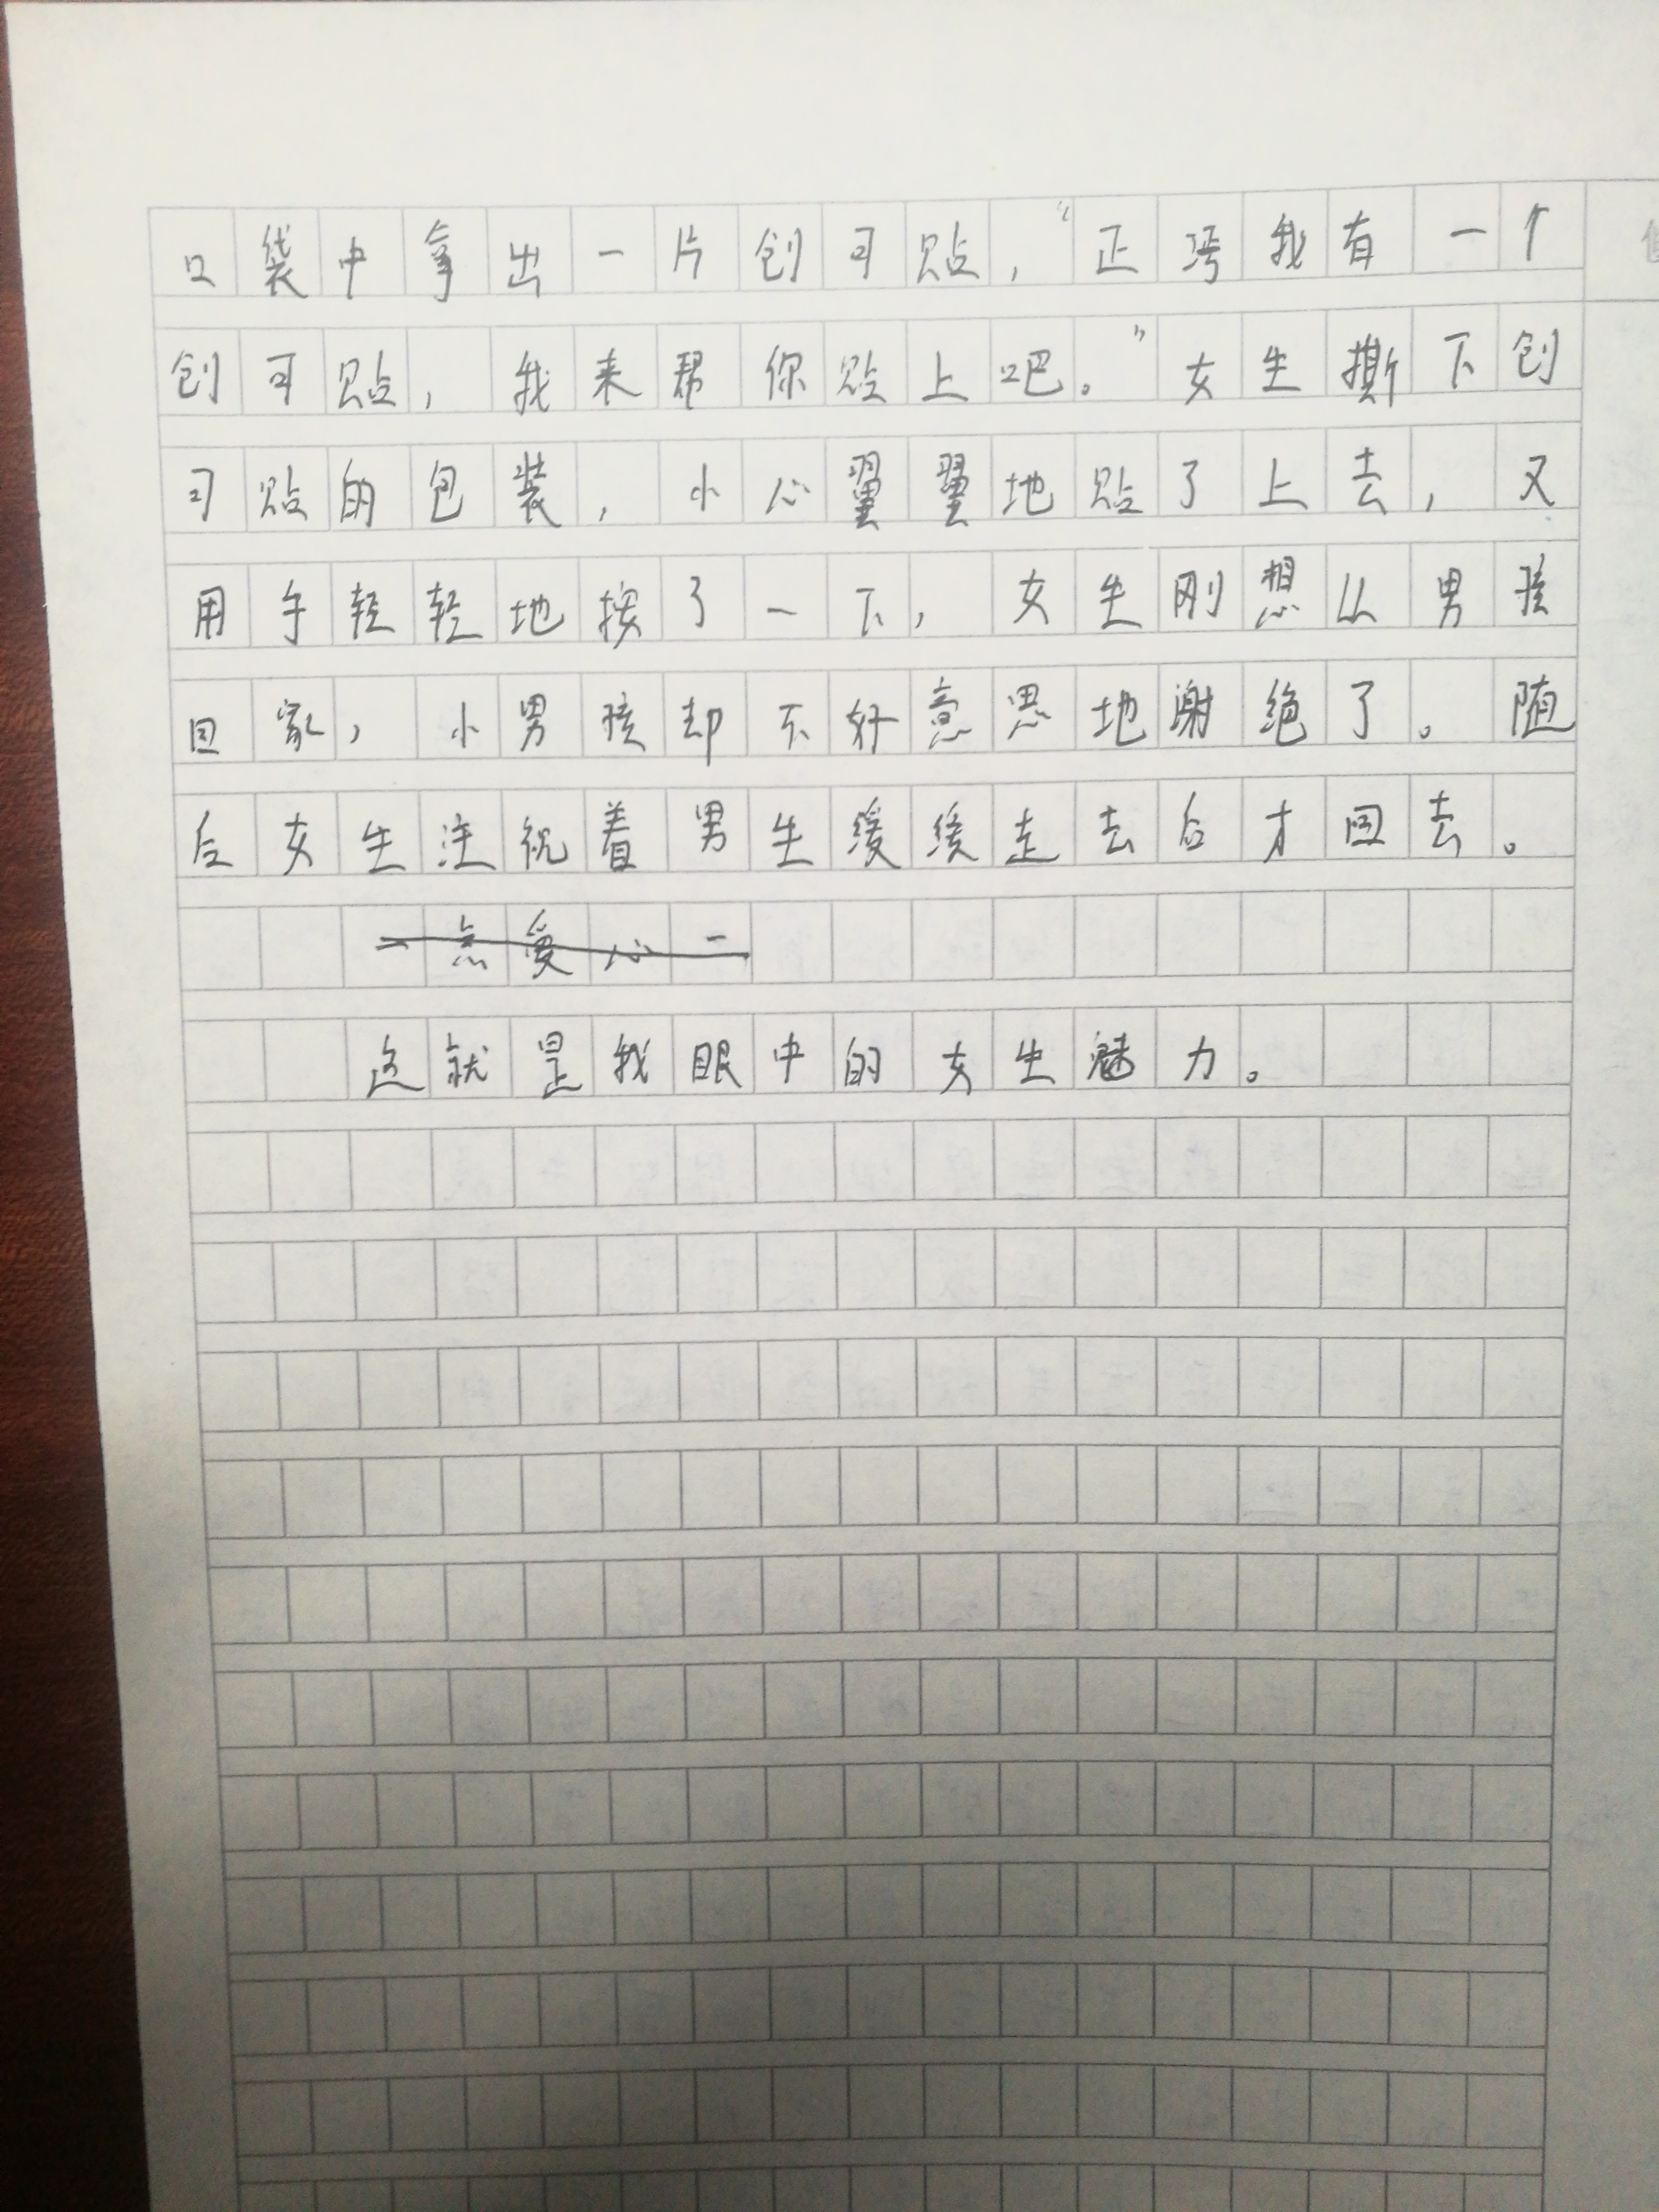 口袋中拿出一片创可贴，“正巧我有一个
创可贴，我来帮你贴上吧。”女生撕下创
可贴的包装，小心翼翼地贴了上去，又
用手轻轻地按了一下，女生刚想从男孩
回家，小男孩却不好意思地谢绝了。随
后女生注视着男生缓缓走去后才回去。
一点爱心一
这就是我眼中的女生魅力。